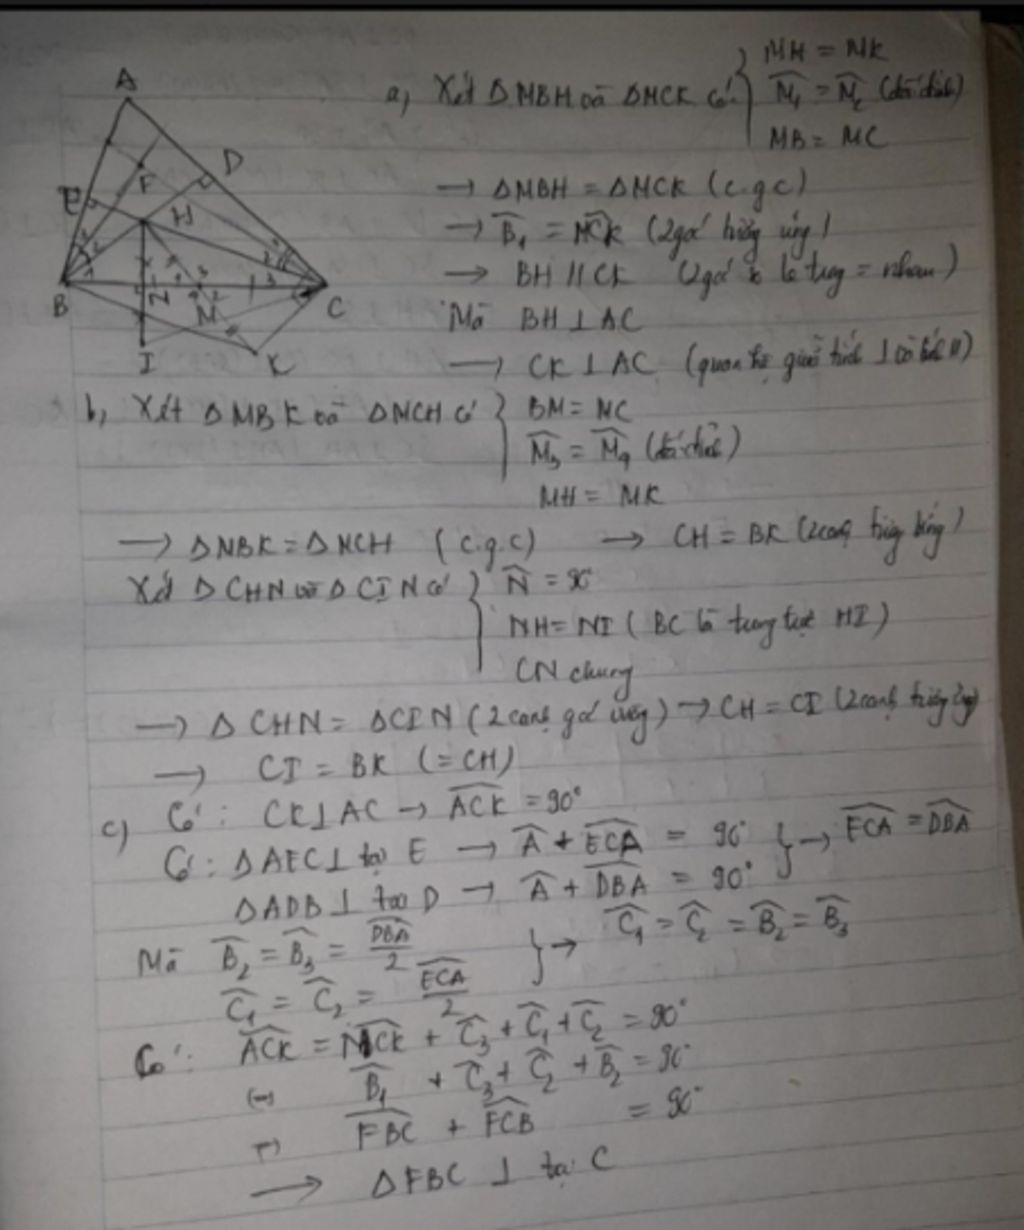 A
D
F
E
H
B
N
M
C
I
K
a, Xét ΔMBH và ΔMCK có
MH = MK
M̂₁ = M̂₂ (đối đỉnh)
MB = MC
→ ΔMBH = ΔMCK (c.g.c)
→ B̂₁ = MCK (2 góc tương ứng)
→ BH // CK (2 góc so le trong = nhau)
Mà BH ⊥ AC
→ CK ⊥ AC (quan hệ giữa tính ⊥ và tính //)
b, Xét ΔMBK và ΔMCH có
BM = MC
M̂₃ = M̂₄ (đối đỉnh)
MH = MK
→ ΔMBK = ΔMCH (c.g.c) → CH = BK (2 cạnh tương ứng)
Xét ΔCHN và ΔCIN có
N̂ = 90°
NH = NI (BC là trung trực HI)
CN chung
→ ΔCHN = ΔCIN (2 cạnh góc vuông) → CH = CI (2 cạnh tương ứng)
→ CI = BK (= CH)
c) Có: CK ⊥ AC → ACK = 90°
Có: ΔAEC ⊥ tại E → Â + ECA = 90°
ΔADB ⊥ tại D → Â + DBA = 90°
} → ECA = DBA
Mà B̂₂ = B̂₃ = DBA/2
Ĉ₁ = Ĉ₂ = ECA/2
} → Ĉ₁ = Ĉ₂ = B̂₂ = B̂₃
Có: ACK = MCK + Ĉ₃ + Ĉ₁ + Ĉ₂ = 90°
B̂₁ + Ĉ₃ + Ĉ₂ + B̂₂ = 90°
FBC + FCB = 90°
→ ΔFBC ⊥ tại C